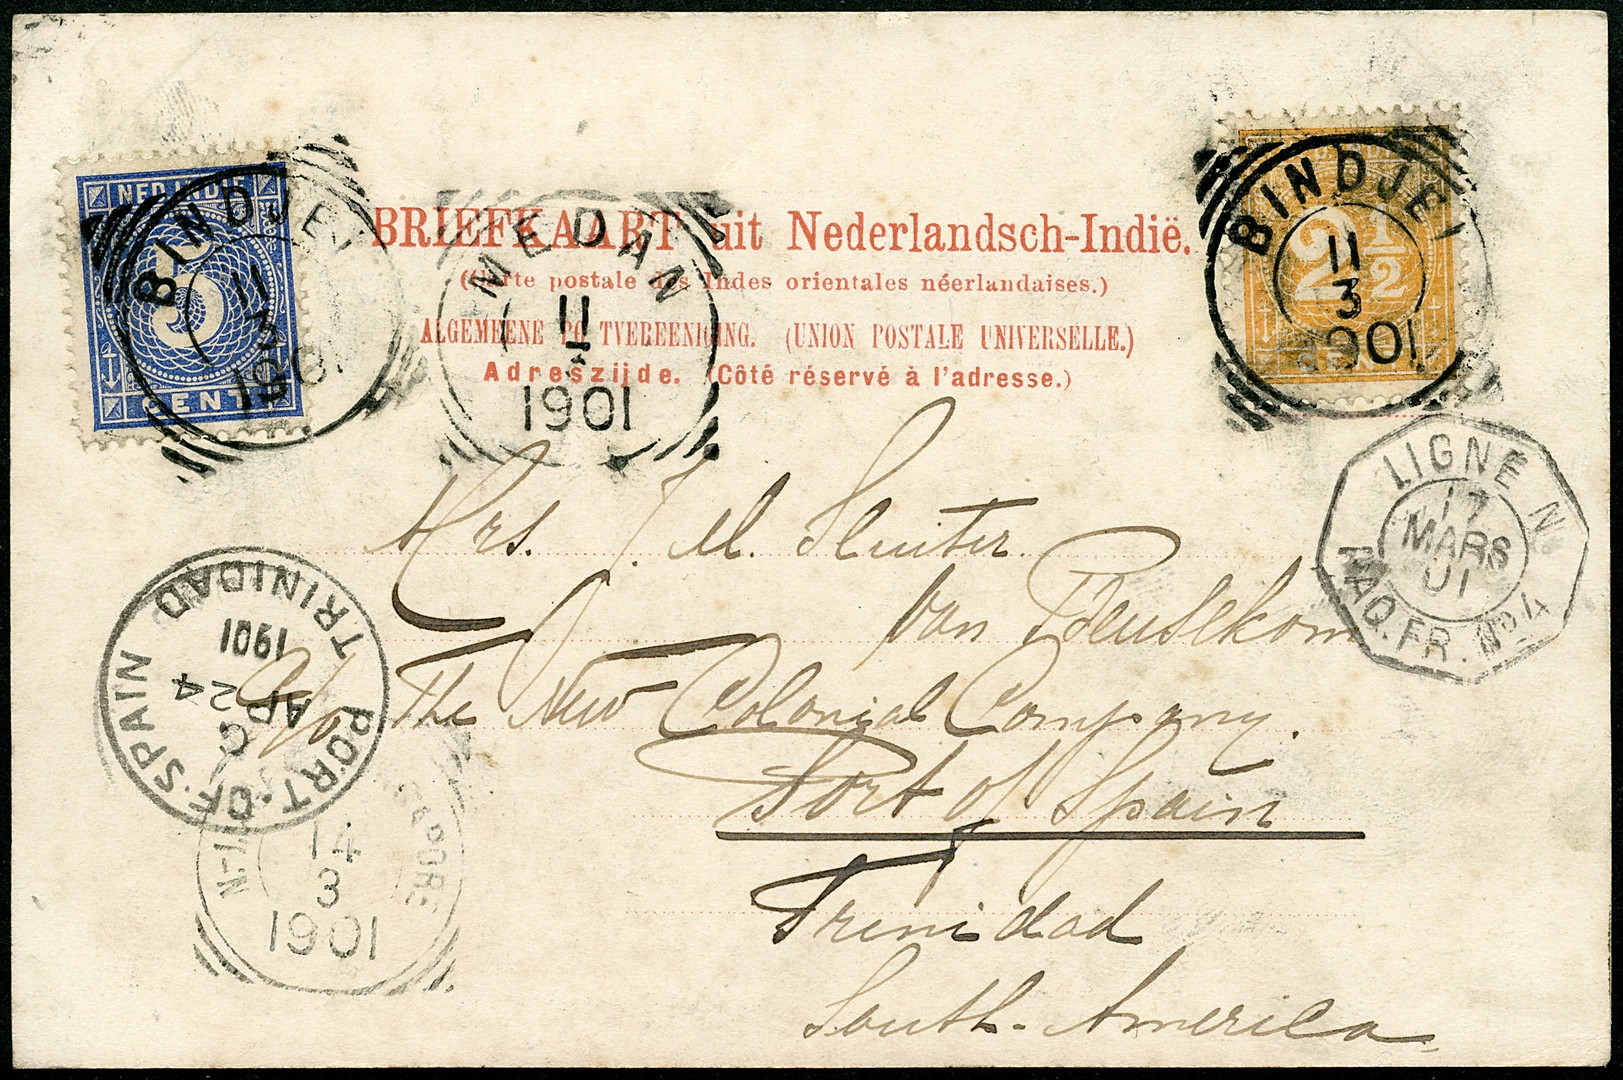 NED. INDIE
5
CENT
BINDJEI
11
3
1901
MEDAN
11
3
1901
BINDJEI
11
3
1901
2 1/2
CENT
BRIEFKAART uit Nederlandsch-Indië.
(Carte postale des Indes orientales néerlandaises.)
ALGEMEENE POSTVEREENIGING. (UNION POSTALE UNIVERSELLE.)
Adreszijde. (Côté réservé à l'adresse.)
LIGNE N
17
MARS
01
PAQ. FR. No. 4
Mrs. J. M. Sluiter
van Beusekom
c/o The New Colonial Company.
Port of Spain
Trinidad
South-America
PORT-OF-SPAIN
TRINIDAD
1901
AP 24
C
14
3
1901